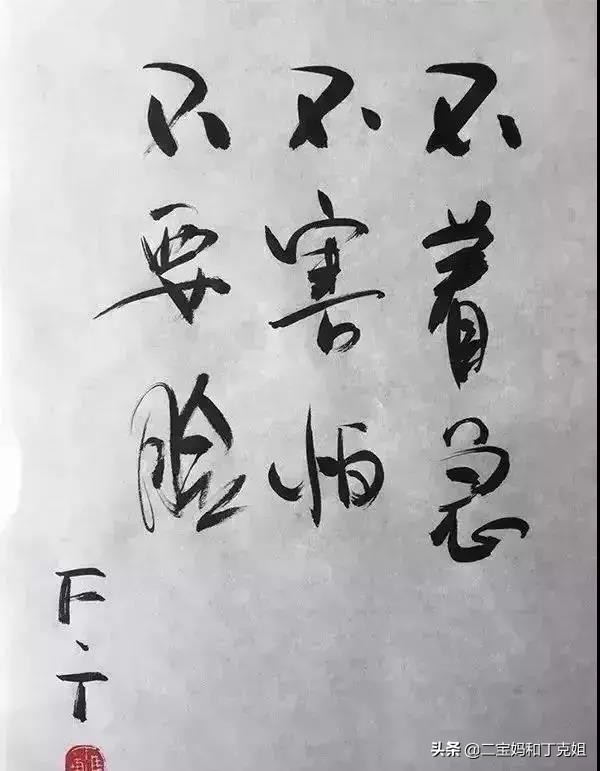 不着急
不害怕
不要脸
F.T
头条 @二宝妈和丁克姐